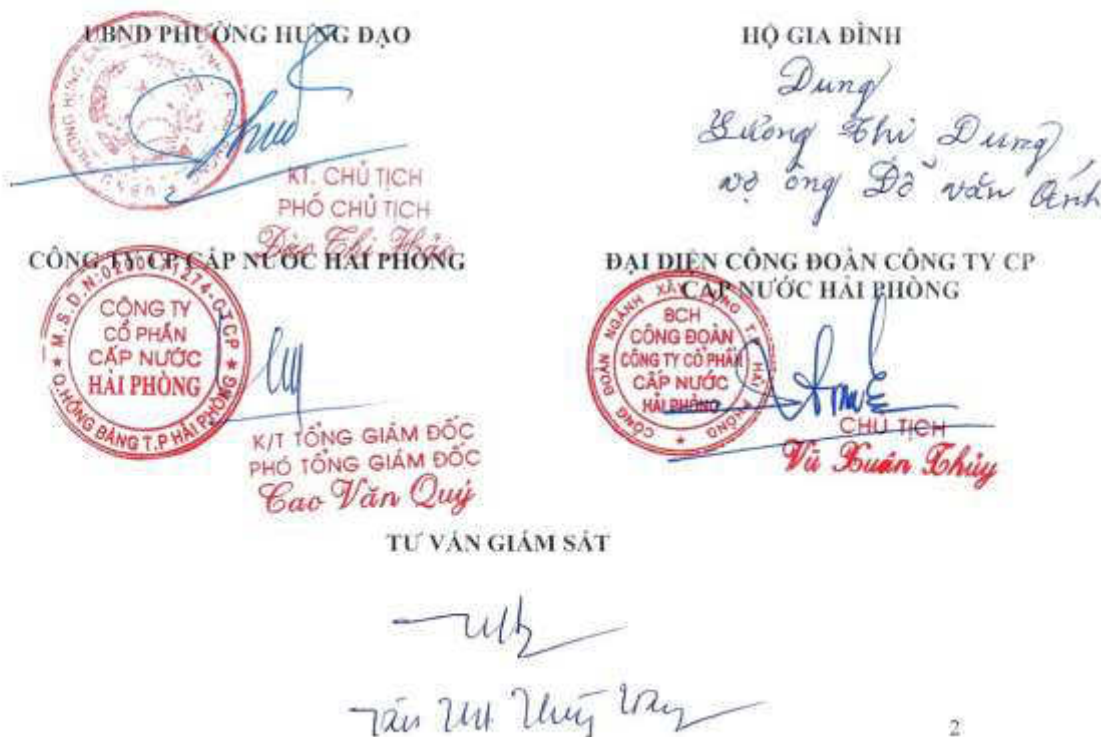 UBND PHƯỜNG HƯNG ĐẠO
KT. CHỦ TỊCH
PHÓ CHỦ TỊCH
Đào Thị Hảo
HỘ GIA ĐÌNH
Dung
Lương Thị Dung
vợ ông Đỗ văn Ánh
CÔNG TY CP CẤP NƯỚC HẢI PHÒNG
CÔNG TY
CỔ PHẦN
CẤP NƯỚC
HẢI PHÒNG
Q.HỒNG BÀNG T.P HẢI PHÒNG
K/T TỔNG GIÁM ĐỐC
PHÓ TỔNG GIÁM ĐỐC
Cao Văn Quý
ĐẠI DIỆN CÔNG ĐOÀN CÔNG TY CP
CẤP NƯỚC HẢI PHÒNG
CÔNG ĐOÀN NGÀNH XÂY DỰNG T.P HẢI PHÒNG
BCH
CÔNG ĐOÀN
CÔNG TY CỔ PHẦN
CẤP NƯỚC
HẢI PHÒNG
CHỦ TỊCH
Vũ Xuân Thủy
TƯ VẤN GIÁM SÁT
2